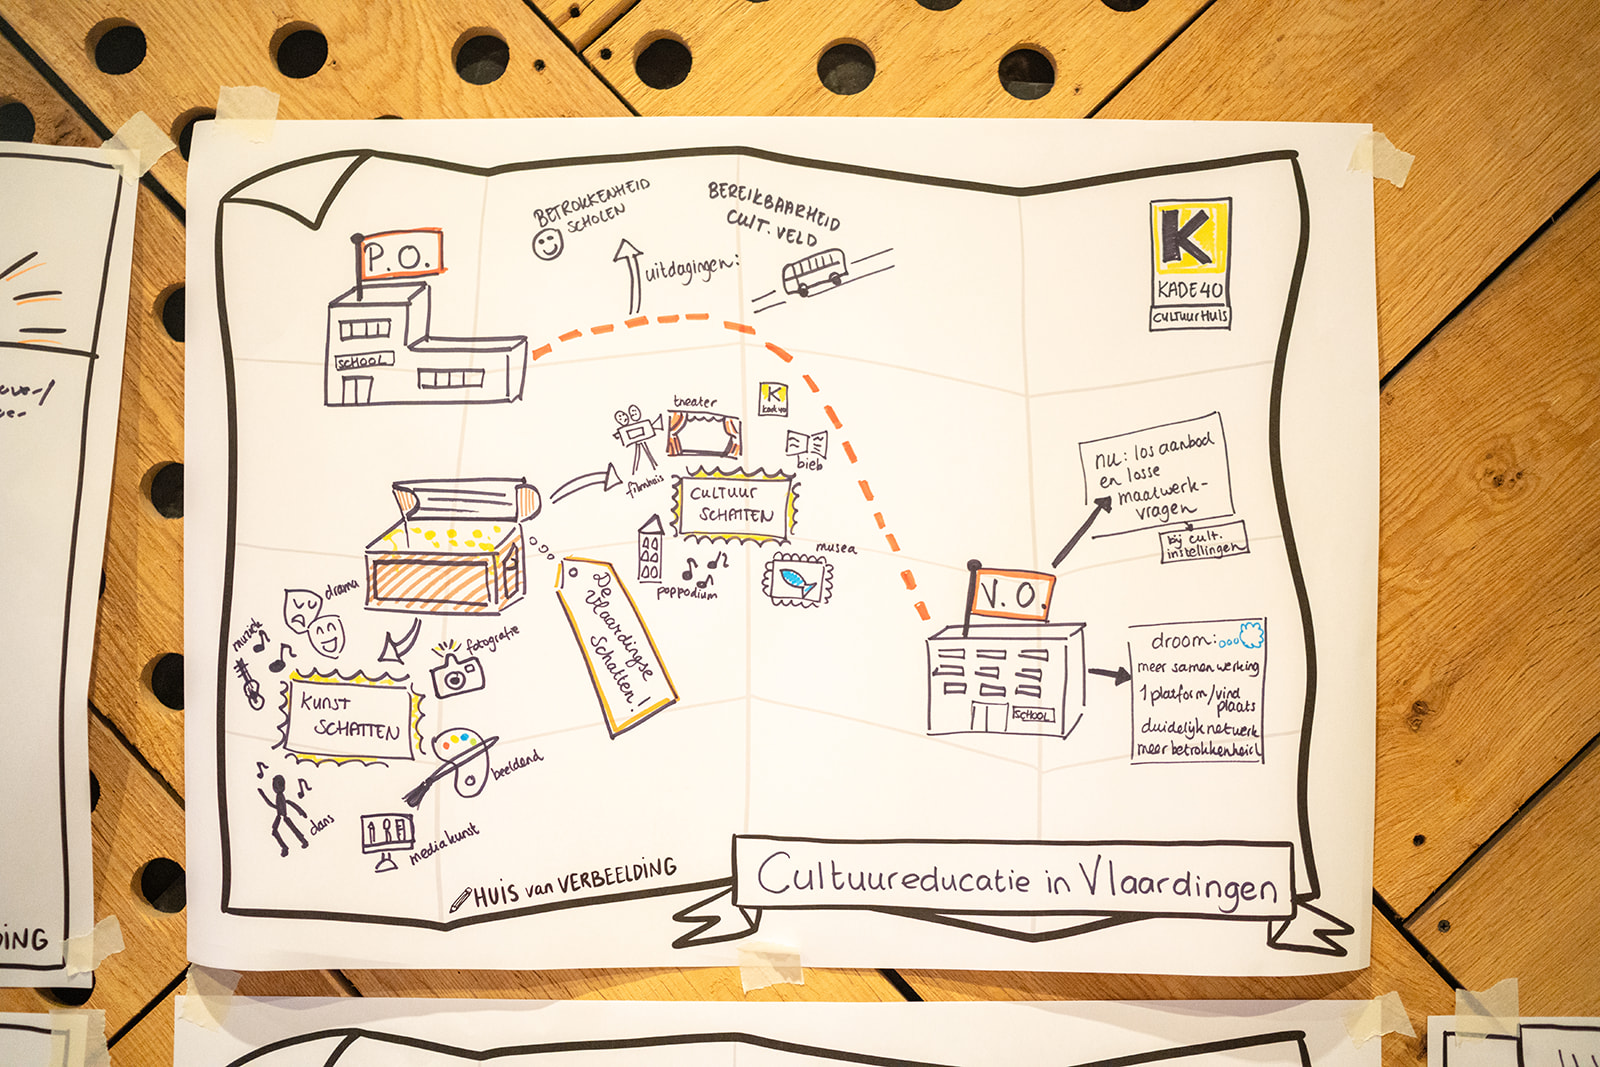 P.O.
SCHOOL
BETROKKENHEID
SCHOLEN
uitdagingen:
BEREIKBAARHEID
CULT. VELD
K
KADE40
CULTUURHUIS
theater
K
KADE40
bieb
filmhuis
CULTUUR
SCHATTEN
musea
poppodium
De
Vlaardingse
Schatten!
drama
muziek
fotografie
KUNST
SCHATTEN
beeldend
dans
mediakunst
nu: los aanbod
en losse
maatwerk-
vragen
bij cult.
instellingen
V.O.
SCHOOL
droom:
meer samenwerking
1 platform/vind
plaats
duidelijk netwerk
meer betrokkenheid
HUIS van VERBEELDING
Cultuureducatie in Vlaardingen
DING